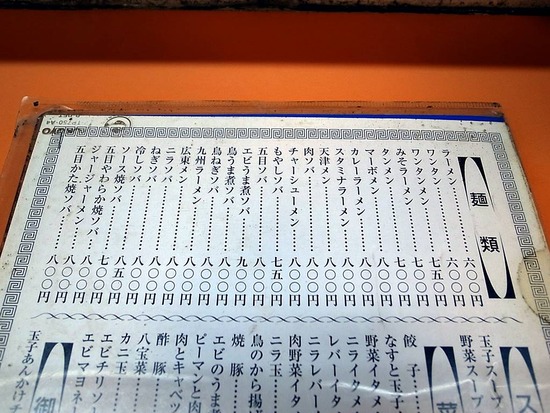 麺類
ラーメン……………六〇〇円
ワンタン……………六〇〇円
ワンタンメン…………七五〇円
みそラーメン…………七〇〇円
タンメン……………七〇〇円
マーボメン……………八〇〇円
カレーラーメン…………八〇〇円
スタミナラーメン………八〇〇円
天津メン……………八〇〇円
肉ソバ………………八〇〇円
チャーシューメン………八〇〇円
もやしソバ……………七五〇円
五目ソバ……………八〇〇円
エビうま煮ソバ…………九〇〇円
鳥うま煮ソバ…………八〇〇円
鳥ねぎソバ……………八〇〇円
九州ラーメン…………八〇〇円
広東メン……………八〇〇円
ニラソバ……………八〇〇円
ねぎソバ……………八〇〇円
冷しソバ……………八五〇円
ソース焼ソバ…………七〇〇円
五目やわらか焼ソバ……八〇〇円
ジャージャーメン………八〇〇円
五目かた焼ソバ………八〇〇円
ス
玉子スープ
野菜スープ
菜
餃子
なすと玉子
野菜イタメ
ニライタメ
レバーイタ
ニラレバー
肉野菜イタ
ニラ玉
鳥のから揚
焼豚
エビのうま煮
ピーマンと肉
肉とキャベツ
酢豚
八宝菜
カニ玉
エビチリソー
エビマヨネ
御
玉子あんかけチ